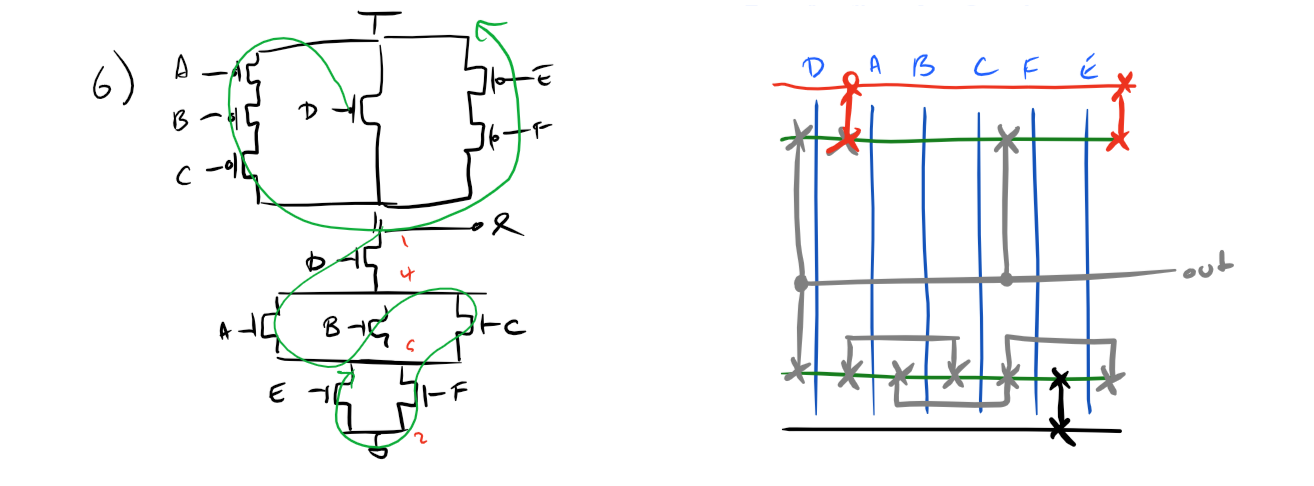 6)
A
B
C
D
E
F
R
1
D
4
A
B
C
5
E
F
2
D A B C F E
out